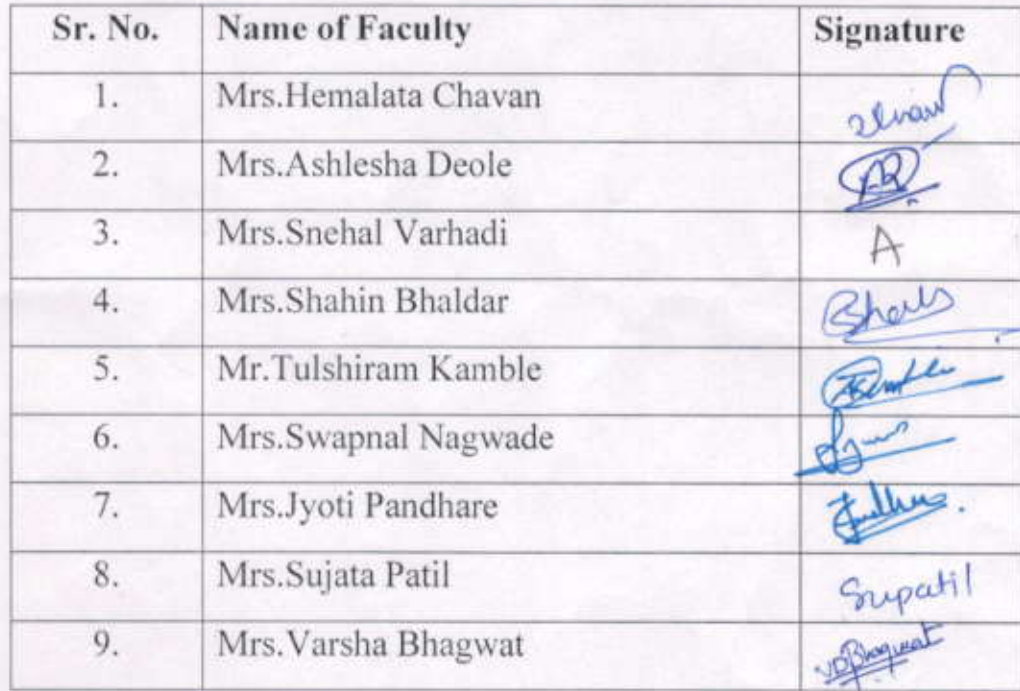 Sr. No. Name of Faculty Signature
1. Mrs.Hemalata Chavan
2. Mrs.Ashlesha Deole
3. Mrs.Snehal Varhadi A
4. Mrs.Shahin Bhaldar
5. Mr.Tulshiram Kamble
6. Mrs.Swapnal Nagwade
7. Mrs.Jyoti Pandhare
8. Mrs.Sujata Patil Supatil
9. Mrs.Varsha Bhagwat VDBhagwat